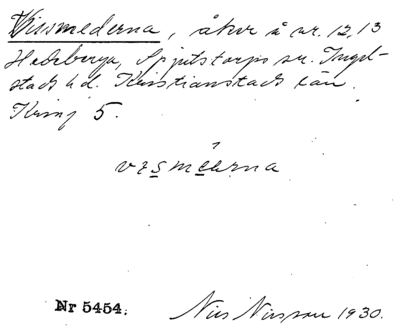 Vissmederna, åkrar å nr. 12, 13
Hedeberga, Spjutstorps sn. Ingel-
stads hd. Kristianstads län.
Kring 5.
Nr 5454.
Nils Nilsson 1930.